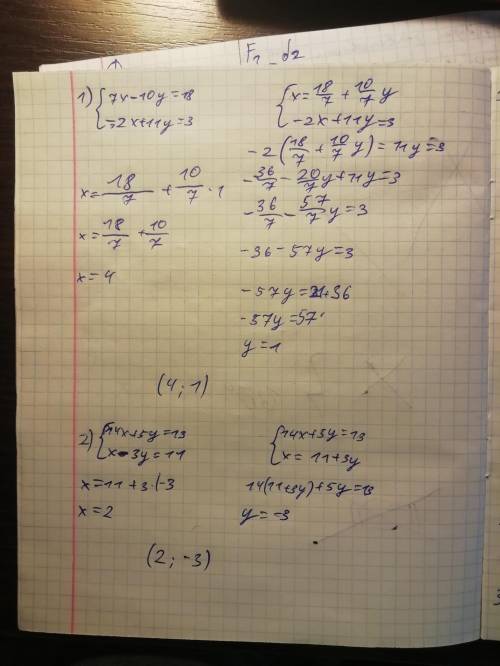 F₁ _ d₂
1) { 7x - 10y = 18
-2x + 11y = 3
{ x = 18/7 + 10/7 y
-2x + 11y = 3
-2(18/7 + 10/7 y) = 11y = 3
-36/7 - 20/7 y + 11y = 3
-36/7 - 57/7 y = 3
-36 - 57y = 3
-57y = 21 + 36
-57y = 57
y = 1
x = 18/7 + 10/7 · 1
x = 18/7 + 10/7
x = 4
(4 ; 1)
2) { 14x + 5y = 13
x - 3y = 11
{ 14x + 5y = 13
x = 11 + 3y
14(11 + 3y) + 5y = 13
y = -3
x = 11 + 3 · (-3
x = 2
(2 ; -3)